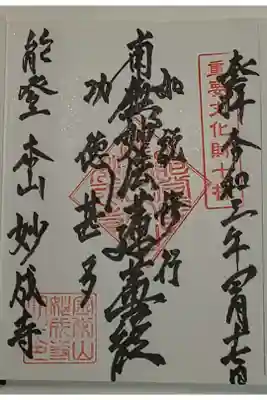 奉拝 令和三年四月十七日
重要文化財十棟
如説修行
南無妙法蓮華経
功徳甚多
能登 本山 妙成寺